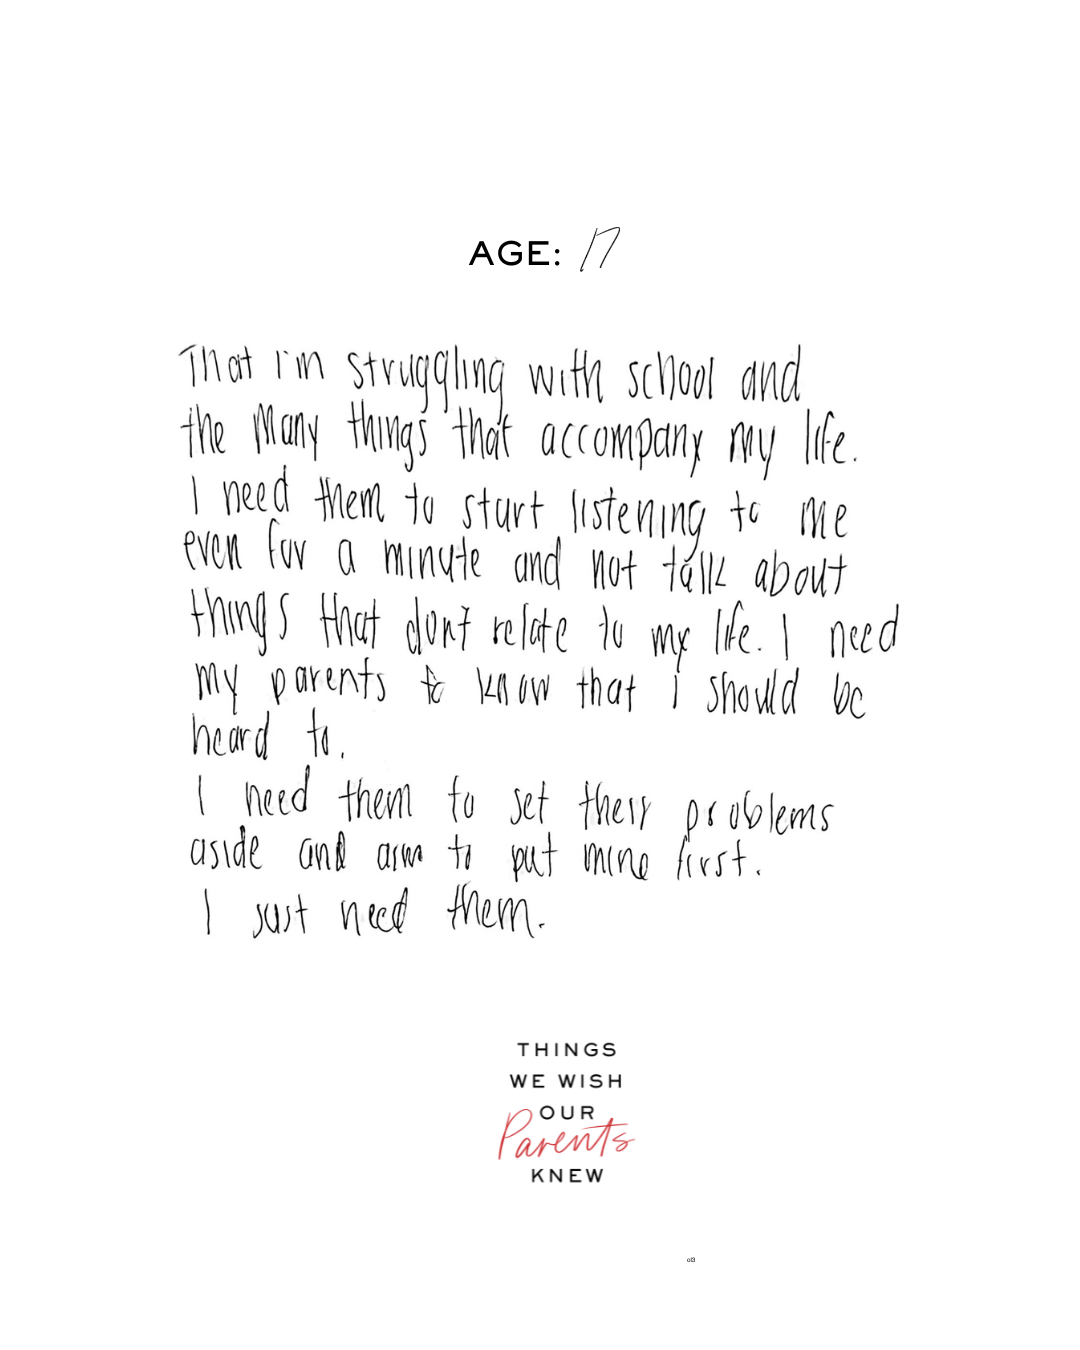 AGE: 17
That I'm struggling with school and
the Many things that accompany my life.
I need them to start listening to me
even for a minute and not talk about
things that don't relate to my life. I need
my parents to know that i should be
heard to.
I need them to set their problems
aside and aim to put mine first.
I just need them.
THINGS
WE WISH
OUR
Parents
KNEW